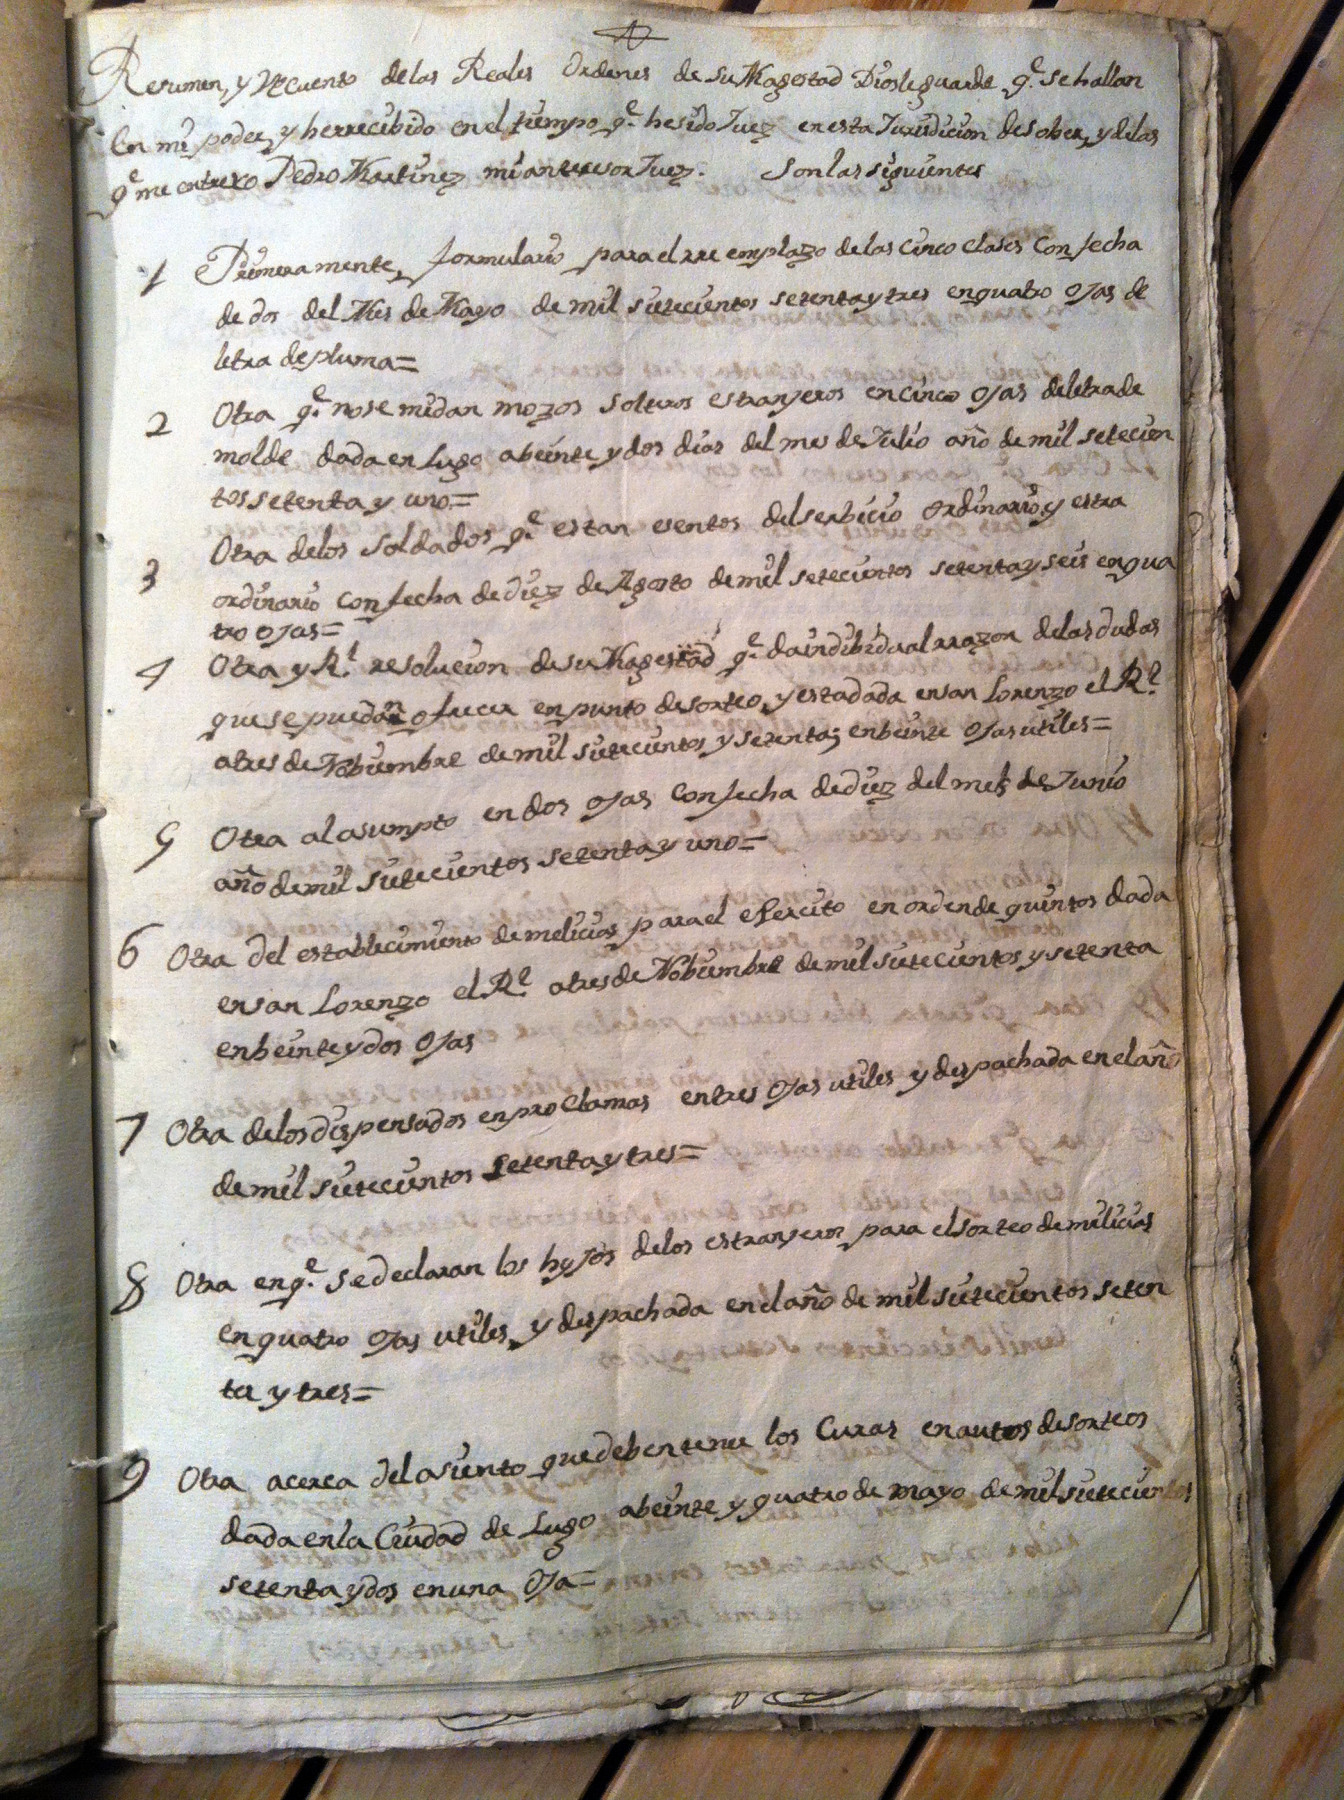 Resumen, y Recuento delas Reales Ordenes de su Magestad Dios le guarde qe. se hallan
en mi poder, y herrecibido en el tiempo qe. hesido Juez en esta Jurisdicion de Sober, y delas
qe me entrexo Pedro Martinez mi antecesor Juez. Son las siguientes
1 Primeramente, formulario para el rre emplazo de las cinco clases con fecha
de dos del Mes de Mayo de mil sietecientos setenta y tres en quatro ojas de
letra de pluma=
2 Otra qe. nose midan mozos solteros estranjeros en cinco ojas de letra de
molde dada en Lugo abeinte y dos dias del mes de Julio año de mil setecien
tos setenta y uno=
3 Otra delos soldados qe. estan esentos del serbicio ordinario y estra
ordinario con fecha de diez de Agosto de mil setecientos setenta y seis en qua
tro ojas=
4 Otra y Rl. resolucion de su Magestad qe. da indibidual rrazon de las dudas
que se puedan ofrecer en punto de sorteo, y esta dada en san Lorenzo el Rl.
atres de Nobiembre de mil sietecientos y setenta; en beinte ojas utiles=
5 Otra al asumpto en dos ojas con fecha de diez del mes de Junio
año de mil sietecientos setenta y uno=
6 Otra del establecimiento de melicias para el esercito en orden de quintos dada
en san Lorenzo el Rl. atres de Nobiembre de mil sietecientos y setenta
en beinte y dos ojas
7 Otra delos dispensados en proclamas en tres ojas utiles y despachada en el año
de mil sietecientos setenta y tres=
8 Otra en qe. se declaran los hyjos delos estranjeros para el sorteo de milicias
en quatro ojas utiles, y despachada en el año de mil sietecientos seten
ta y tres=
9 Otra acerca del asiento que deben tener los Curas en autos de sorteos
dada en la Ciudad de Lugo abeinte y quatro de mayo de mil sietecientos
setenta y dos en una oja=